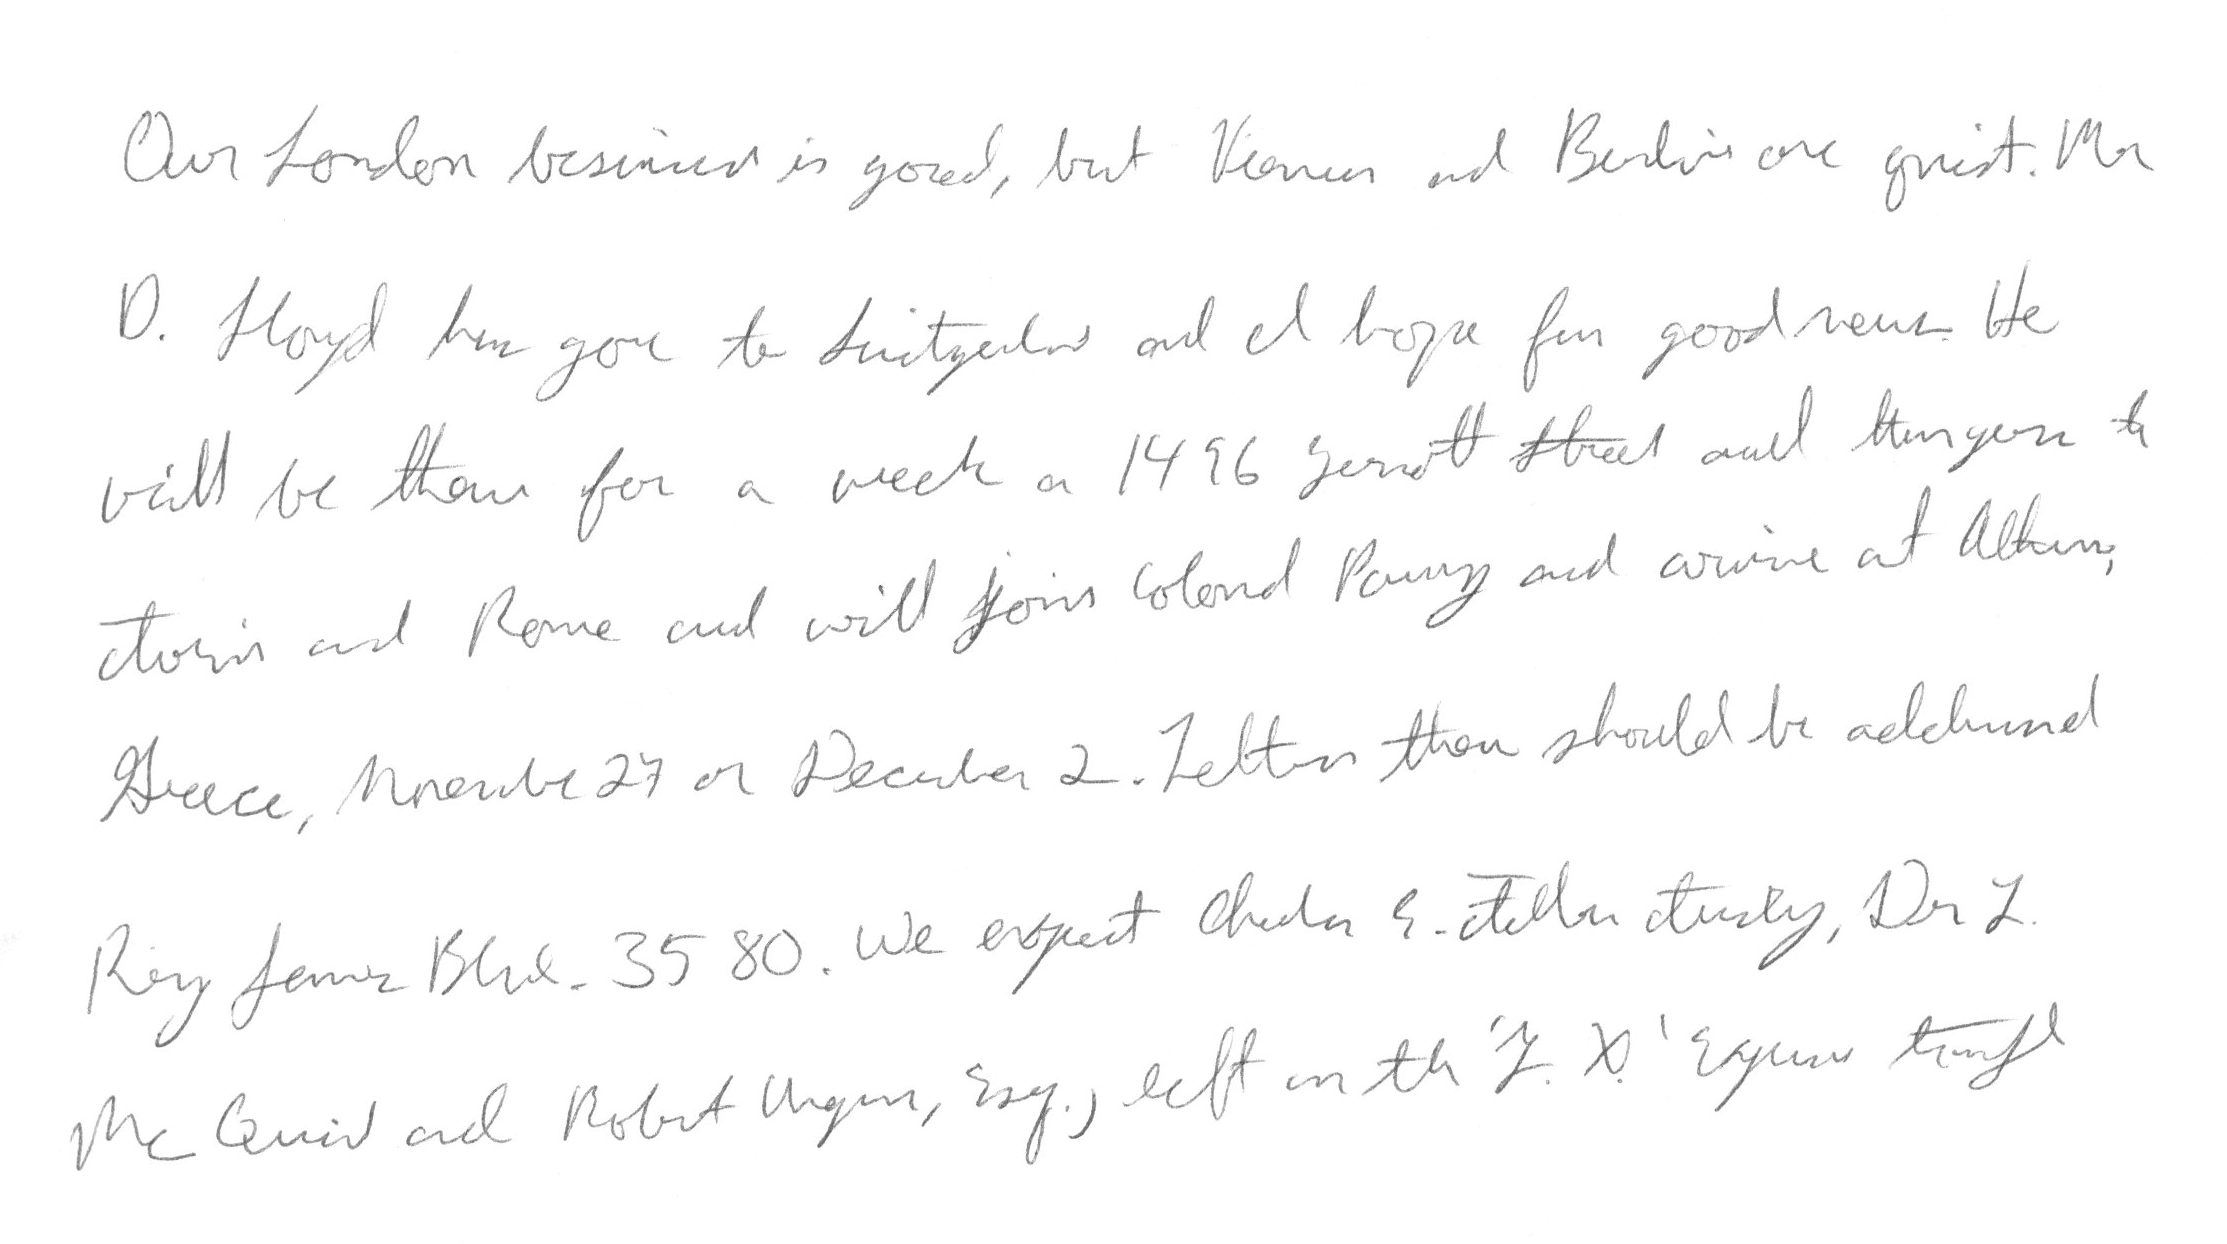 Our London business is good, but Vienna and Berlin are quiet. Mr
D. Lloyd has gone to Switzerland and I hope for good news. He
will be there for a week a 1496 Zermott Street and then goes to
Turin and Rome and will join Colonel Parry and arrive at Athens,
Greece, November 27 or December 2. Letters there should be addressed
King James Blvd. 3580. We expect Charles E. Teller Tuesday, Dr L.
McQuaid and Robert Unger, Esq., left on the 'Y. X.' Express tonight